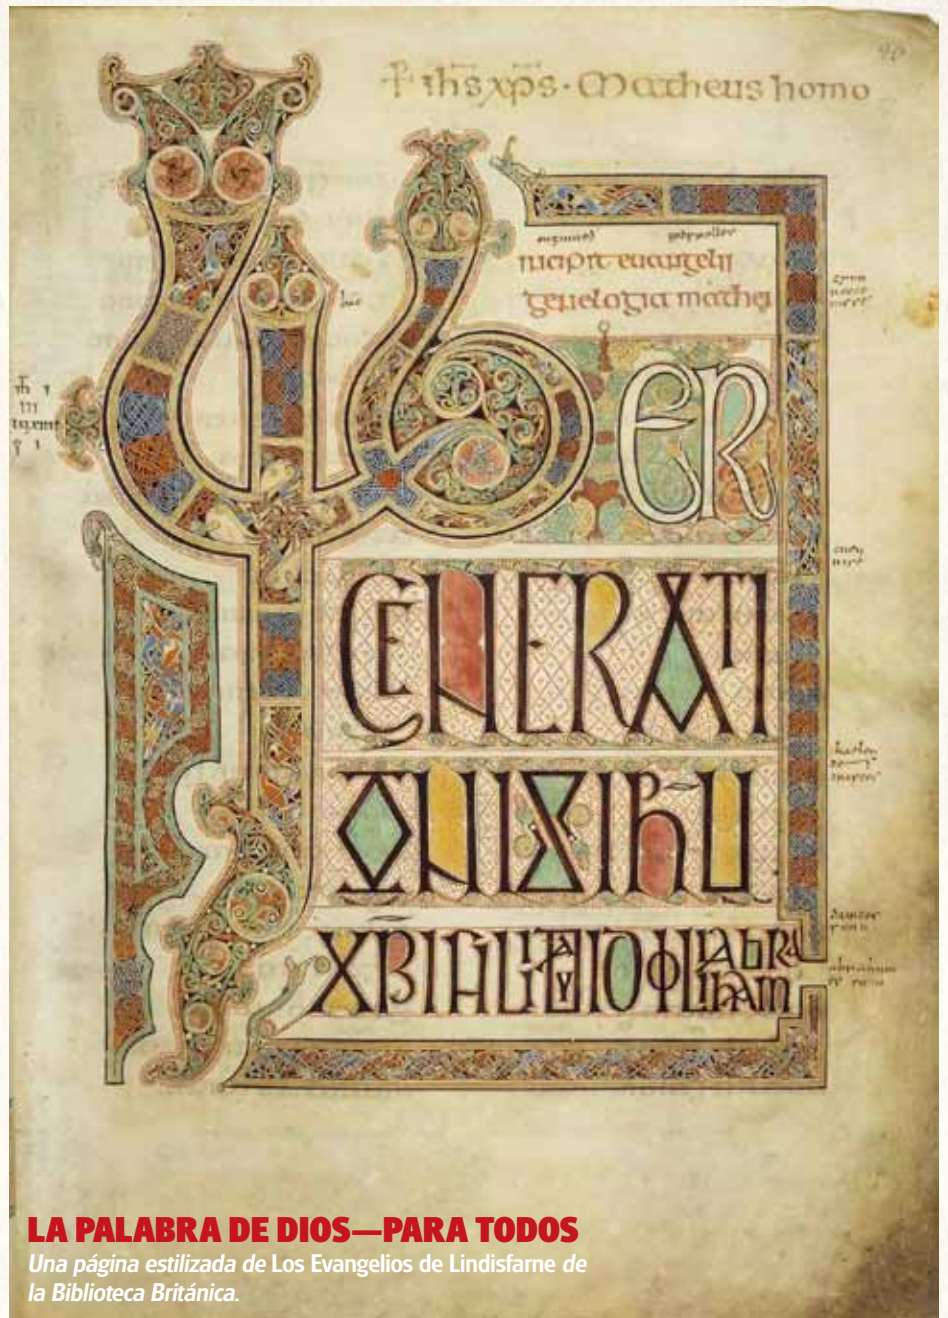 † ihs xps · Matheus homo
incipit euangelii
genelogia mathei
LIBER
GENERATI
ONIS IHU
XPI FILII DAUID FILII ABRAHAM
LA PALABRA DE DIOS—PARA TODOS
Una página estilizada de Los Evangelios de Lindisfarne de
la Biblioteca Británica.